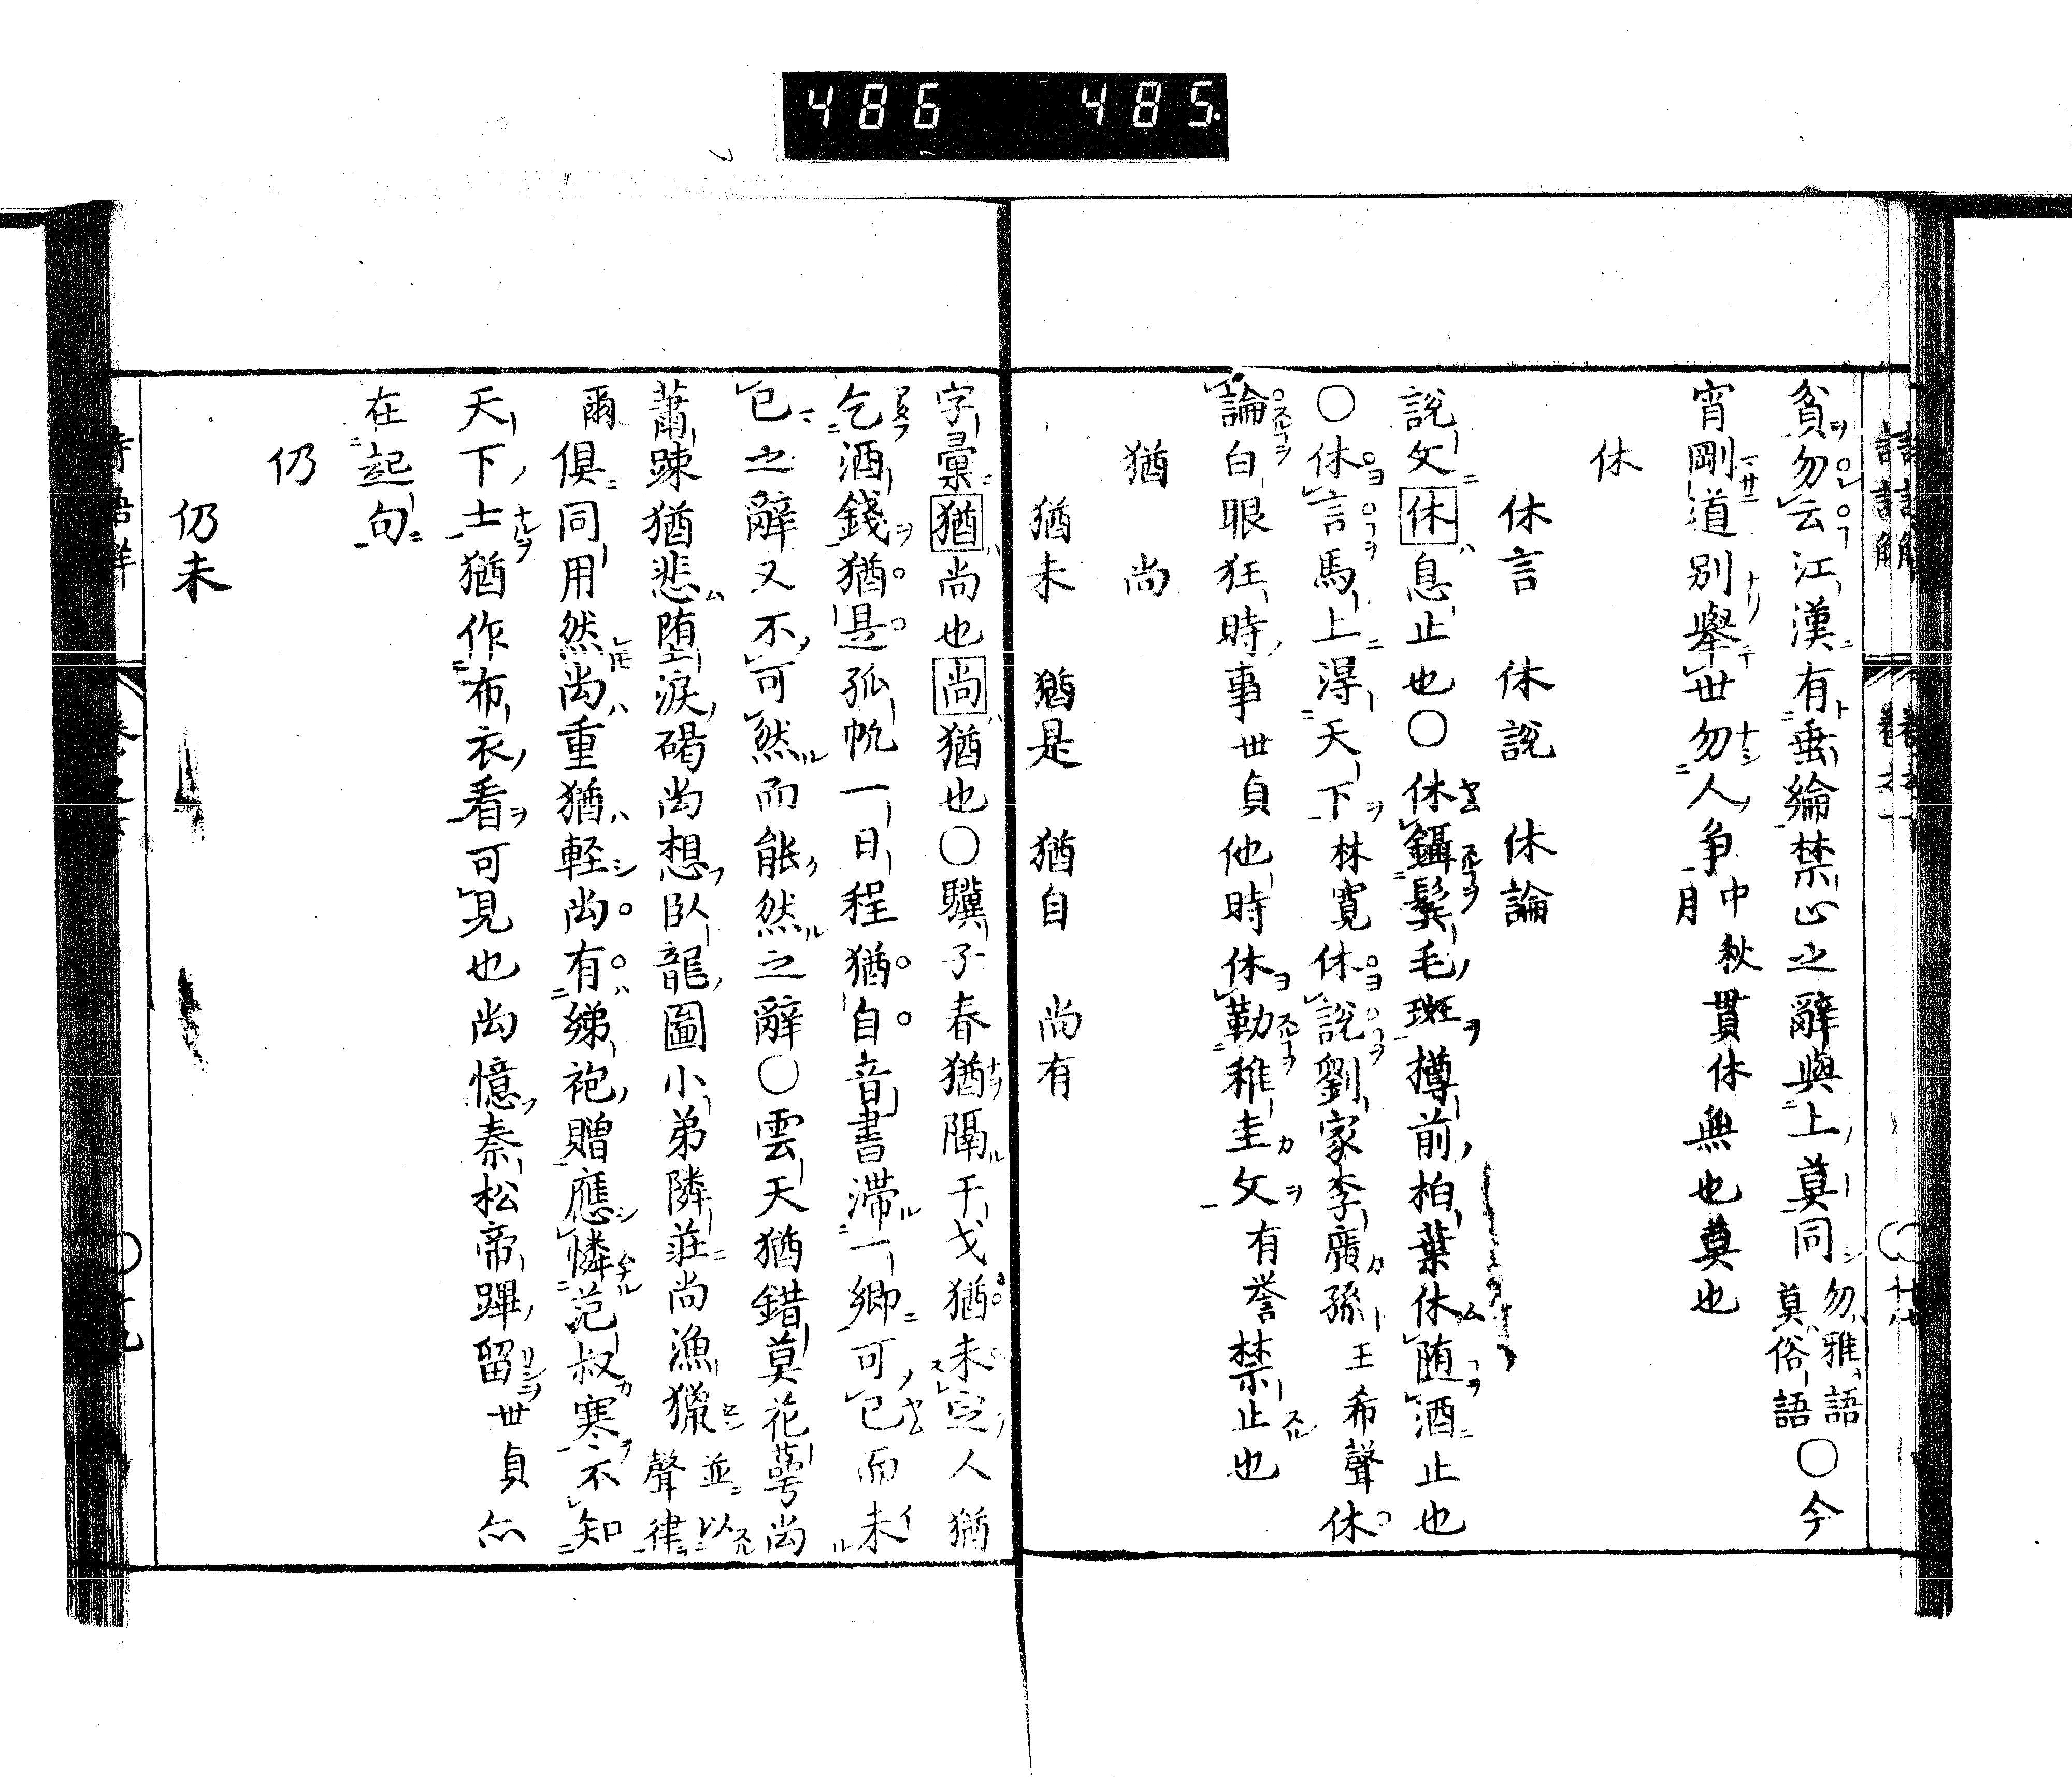 486 485
貧勿云江漢有垂綸禁止之辭與上莫同勿雅語莫俗語〇今
宵剛道別舉世勿人爭中秋月貫休無也莫也
休
休言 休說 休論
說文休息止也〇休鑷鬢毛斑樽前柏葉休随酒止也
〇休言馬上得天下林寬休說劉家李廣孫王希聲休
論白眼狂時事世貞他時休勒稚圭文有誉禁止也
猶 尚
猶未 猶是 猶自 尚有
字彙猶尚也尚猶也〇驥子春猶隔干戈猶未定人猶
乞酒錢猶是孤帆一日程猶自音書滞一鄉可已而未
已之辭又不可然而能然之辭〇雲天猶錯莫花萼尚
蕭踈猶悲堕淚碣尚想臥龍圖小弟隣莊尚漁獵並以聲律
爾俱同用然尚重猶輕尚有綈袍贈應憐范叔寒不知
天下士猶作布衣看可見也尚憶秦松帝蹕留世貞亦
在起句
仍
仍未